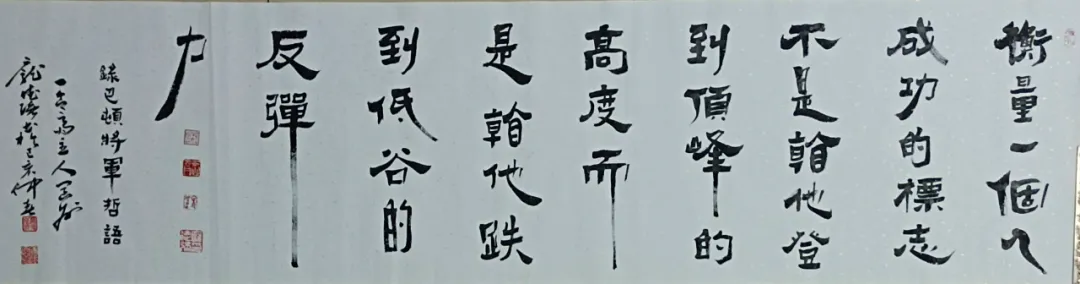 衡量一個人
成功的標志
不是看他登
到頂峰的
高度而
是看他跌
到低谷的
反彈
力
錄巴頓將軍哲語
主人
仲春